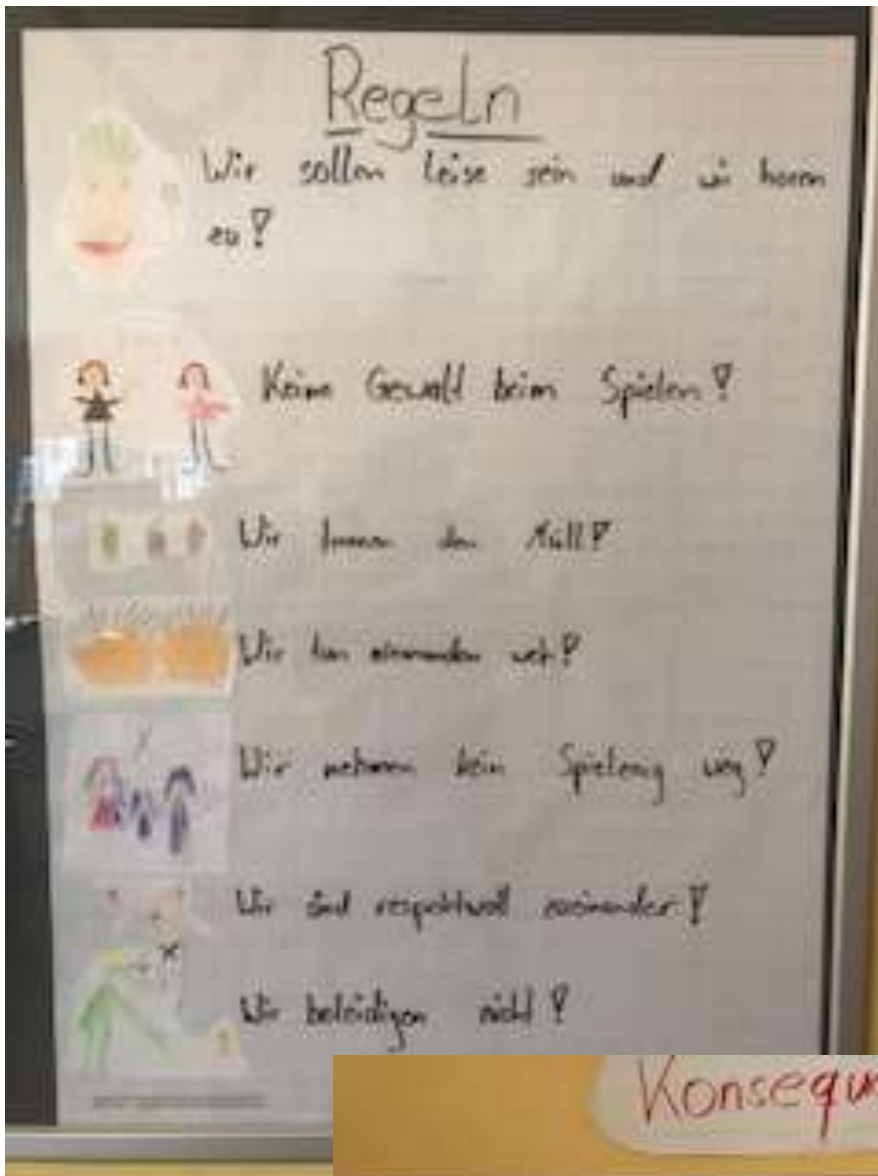 Regeln
Wir sollen leise sein und wir hören
zu!
Keine Gewalt beim Spielen!
Wir trennen den Müll!
Wir tun niemanden weh!
Wir nehmen kein Spielzeug weg!
Wir sind respektvoll zueinander!
Wir beleidigen nicht!
Konsequ